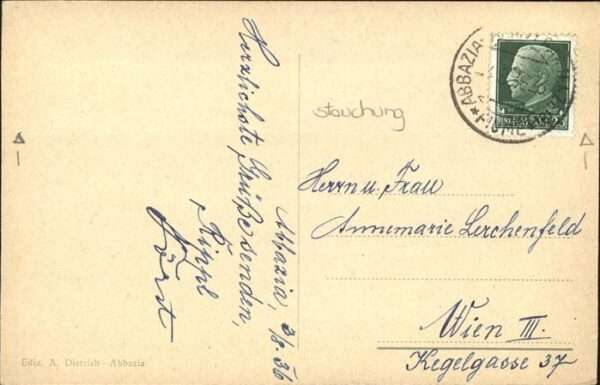 Abbazia, 3/8. 36
Herzlichste Grüße senden,
Rippl
Fürst
stauchung
ABBAZIA
FIUME
Herrn u. Frau
Annemarie Lerchenfeld
Wien III.
Kegelgasse 37
Ediz. A. Dietrich - Abbazia